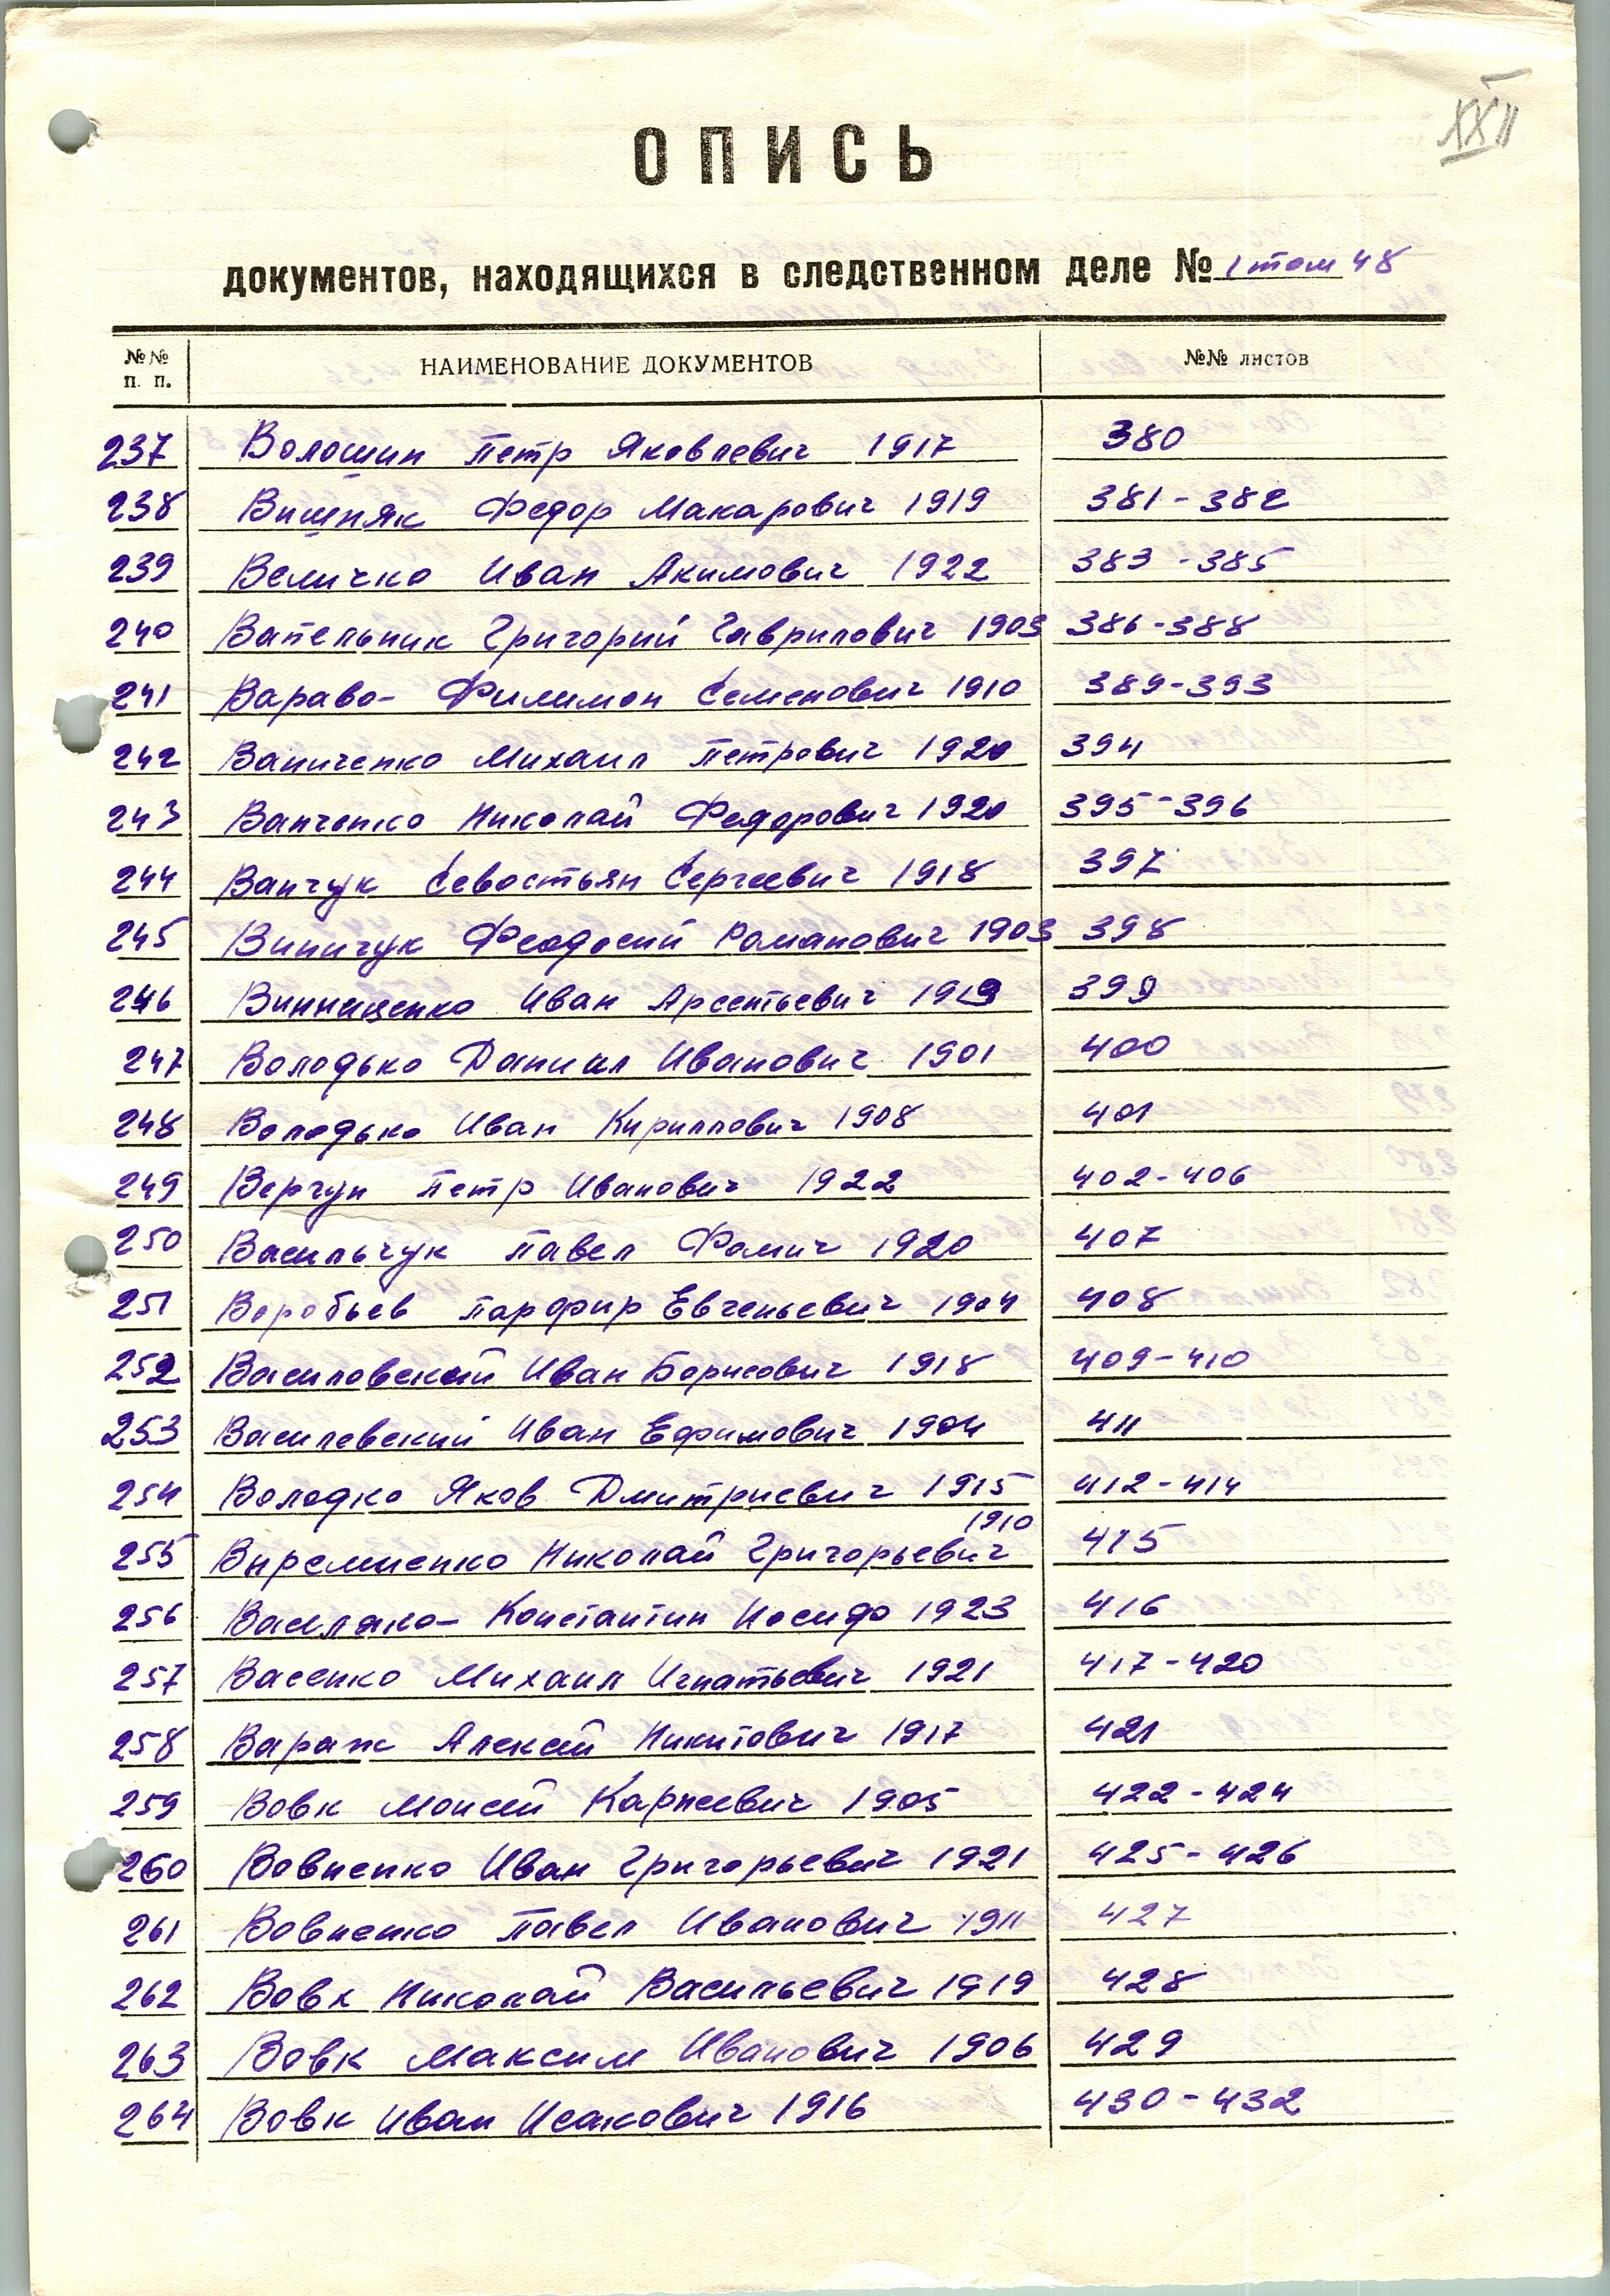 XXII
ОПИСЬ
документов, находящихся в следственном деле № 1 том 48
№№ п. п. НАИМЕНОВАНИЕ ДОКУМЕНТОВ №№ листов
237 Волошин Петр Яковлевич 1917 380
238 Вишняк Федор Макарович 1919 381-382
239 Величко Иван Акимович 1922 383-385
240 Вательник Григорий Гаврилович 1903 386-388
241 Вараво- Филимон Семенович 1910 389-393
242 Ваниченко Михаил Петрович 1920 394
243 Ванченко Николай Федорович 1920 395-396
244 Ванчук Севостьян Сергеевич 1918 397
245 Виничук Феодосий Романович 1903 398
246 Винниценко Иван Арсентьевич 1919 399
247 Володько Данил Иванович 1901 400
248 Володько Иван Кириллович 1908 401
249 Верчун Петр Иванович 1922 402-406
250 Васильчук Павел Фомич 1920 407
251 Воробьев Парфир Евгеньевич 1904 408
252 Василовский Иван Борисович 1918 409-410
253 Василевский Иван Ефимович 1904 411
254 Володко Яков Дмитриевич 1915 412-414
255 Николай Григорьевич 1910 415
256 Василяко- Константин Иосифо 1923 416
257 Васенко Михаил Игнатьевич 1921 417-420
258 Вараж Алексей Никитович 1917 421
259 Вовк Моисей Карпеевич 1905 422-424
260 Вовненко Иван Григорьевич 1921 425-426
261 Вовненко Павел Иванович 1911 427
262 Вовк Николай Васильевич 1919 428
263 Вовк Максим Иванович 1906 429
264 Вовк Иван Исакович 1916 430-432